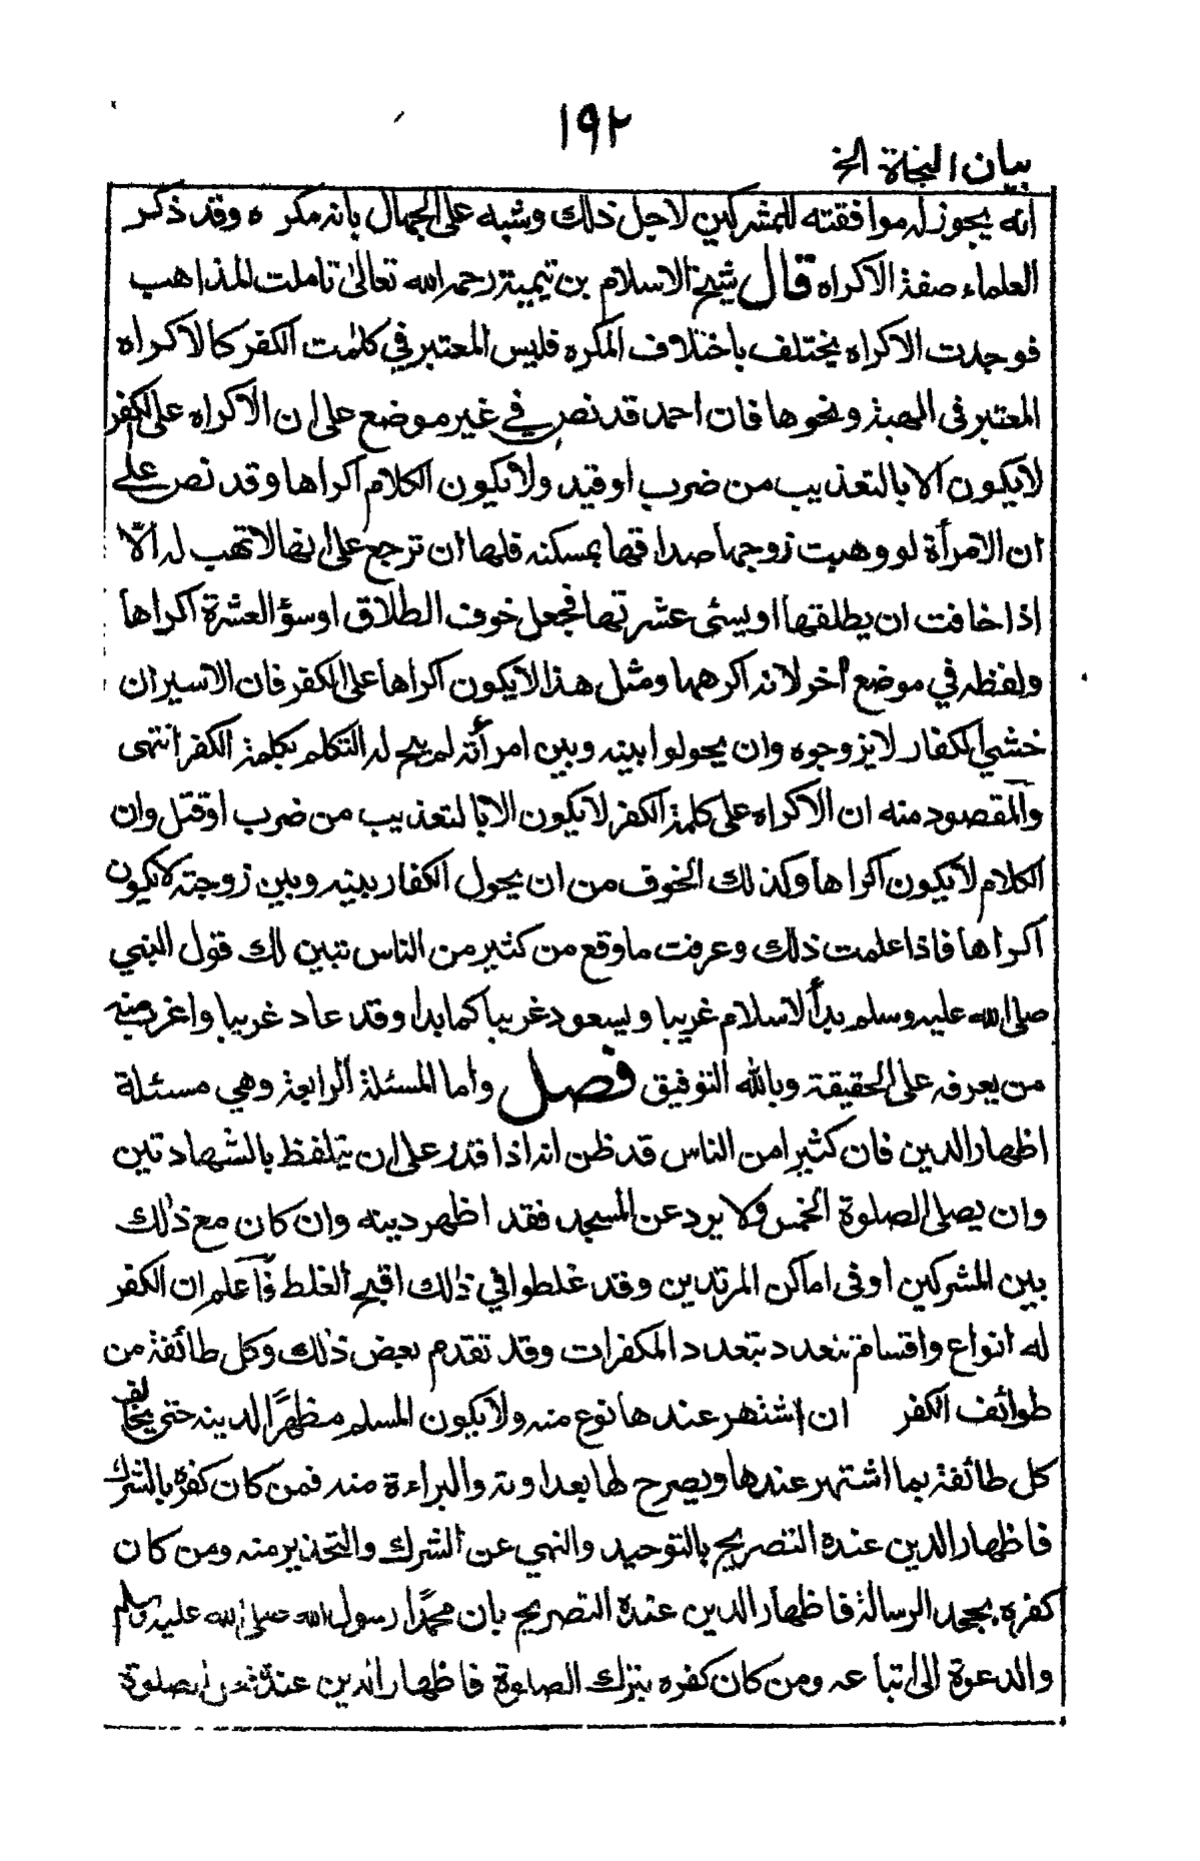 ١٩٢
بيان النجاة الخ
انه يجوز له موافقته للمشركين لاجل ذلك وشبه على الجهال بانه مكره وقد ذكر
العلماء صفة الاكراه قال شيخ الاسلام بن تيمية رحمه الله تعالى تاملت المذاهب
فوجدت الاكراه يختلف باختلاف المكره فليس المعتبر في كلمات الكفر كالاكراه
المعتبر فى الهبة ونحوها فان احمد قد نص في غير موضع على ان الاكراه على الكفر
لا يكون الا بالتعذيب من ضرب او قيد ولا يكون الكلام اكراها وقد نص على
ان الامرأة لو وهبت زوجها صداقها بمسكنه فلها ان ترجع على انها لا تهب له الّا
اذا خافت ان يطلقها او يسئى عشرتها فجعل خوف الطلاق او سؤ العشرة اكراها
ولفظه في موضع أخر لانه اكرهها ومثل هذا لا يكون اكراها على الكفر فان الاسير ان
خشي الكفار لا يزوجوه وان يحولوا بينه وبين امرأته لم يبح له التكلم بكلمة الكفر انتهى
والمقصود منه ان الاكراه على كلمة الكفر لا يكون الا بالتعذيب من ضرب او قتل وان
الكلام لا يكون اكراها وكذلك الخوف من ان يحول الكفار بينه وبين زوجته لا يكون
اكراها فاذا علمت ذلك وعرفت ما وقع من كثير من الناس تبين لك قول النبي
صلى الله عليه وسلم بدأ الاسلام غريبا وسيعود غريبا كما بدا وقد عاد غريبا واغرب منه
من يعرفه على الحقيقة وبالله التوفيق فصل واما المسئلة الرابعة وهي مسئلة
اظهار الدين فان كثيرا من الناس قد ظن انه اذا قدر على ان يتلفظ بالشهادتين
وان يصلى الصلوة الخمس ولا يرد عن المسجد فقد اظهر دينه وان كان مع ذلك
بين المشركين او فى اماكن المرتدين وقد غلطوا في ذلك اقبح الغلط فاعلم ان الكفر
له انواع واقسام تتعدد بتعدد المكفرات وقد تقدم بعض ذلك وكل طائفة من
طوائف الكفر ان اشتهر عندها نوع منه ولا يكون المسلم مظهرًا لدينه حتى يخالف
كل طائفة بما اشتهر عندها ويصرح لها بعداوته والبراءة منه فمن كان كفره بالشرك
فاظهار الدين عنده التصريح بالتوحيد والنهي عن الشرك والتحذير منه ومن كان
كفره بجحد الرسالة فاظهار الدين عنده التصريح بان محمدًا رسول الله صلى الله عليه وسلم
والدعوة الى اتباعه ومن كان كفره بترك الصلوة فاظهار الدين عنده فعل الصلوة